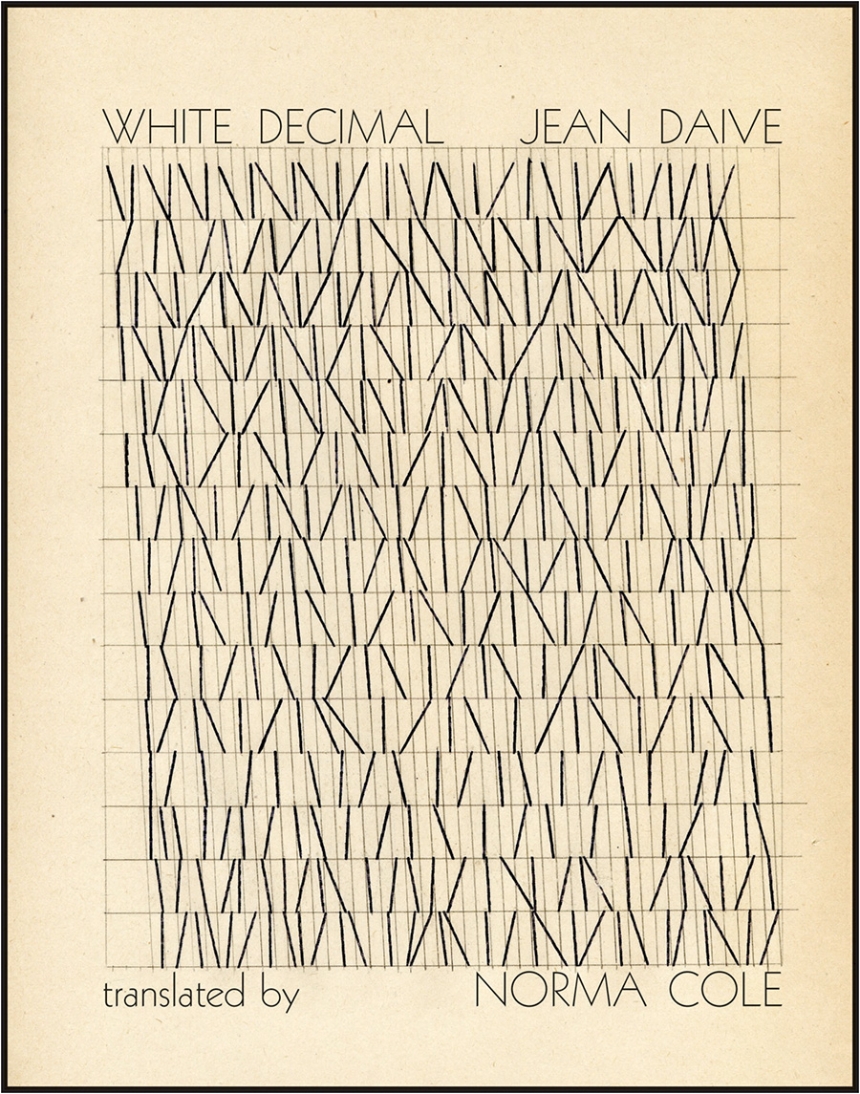 WHITE DECIMAL JEAN DAIVE
translated by NORMA COLE